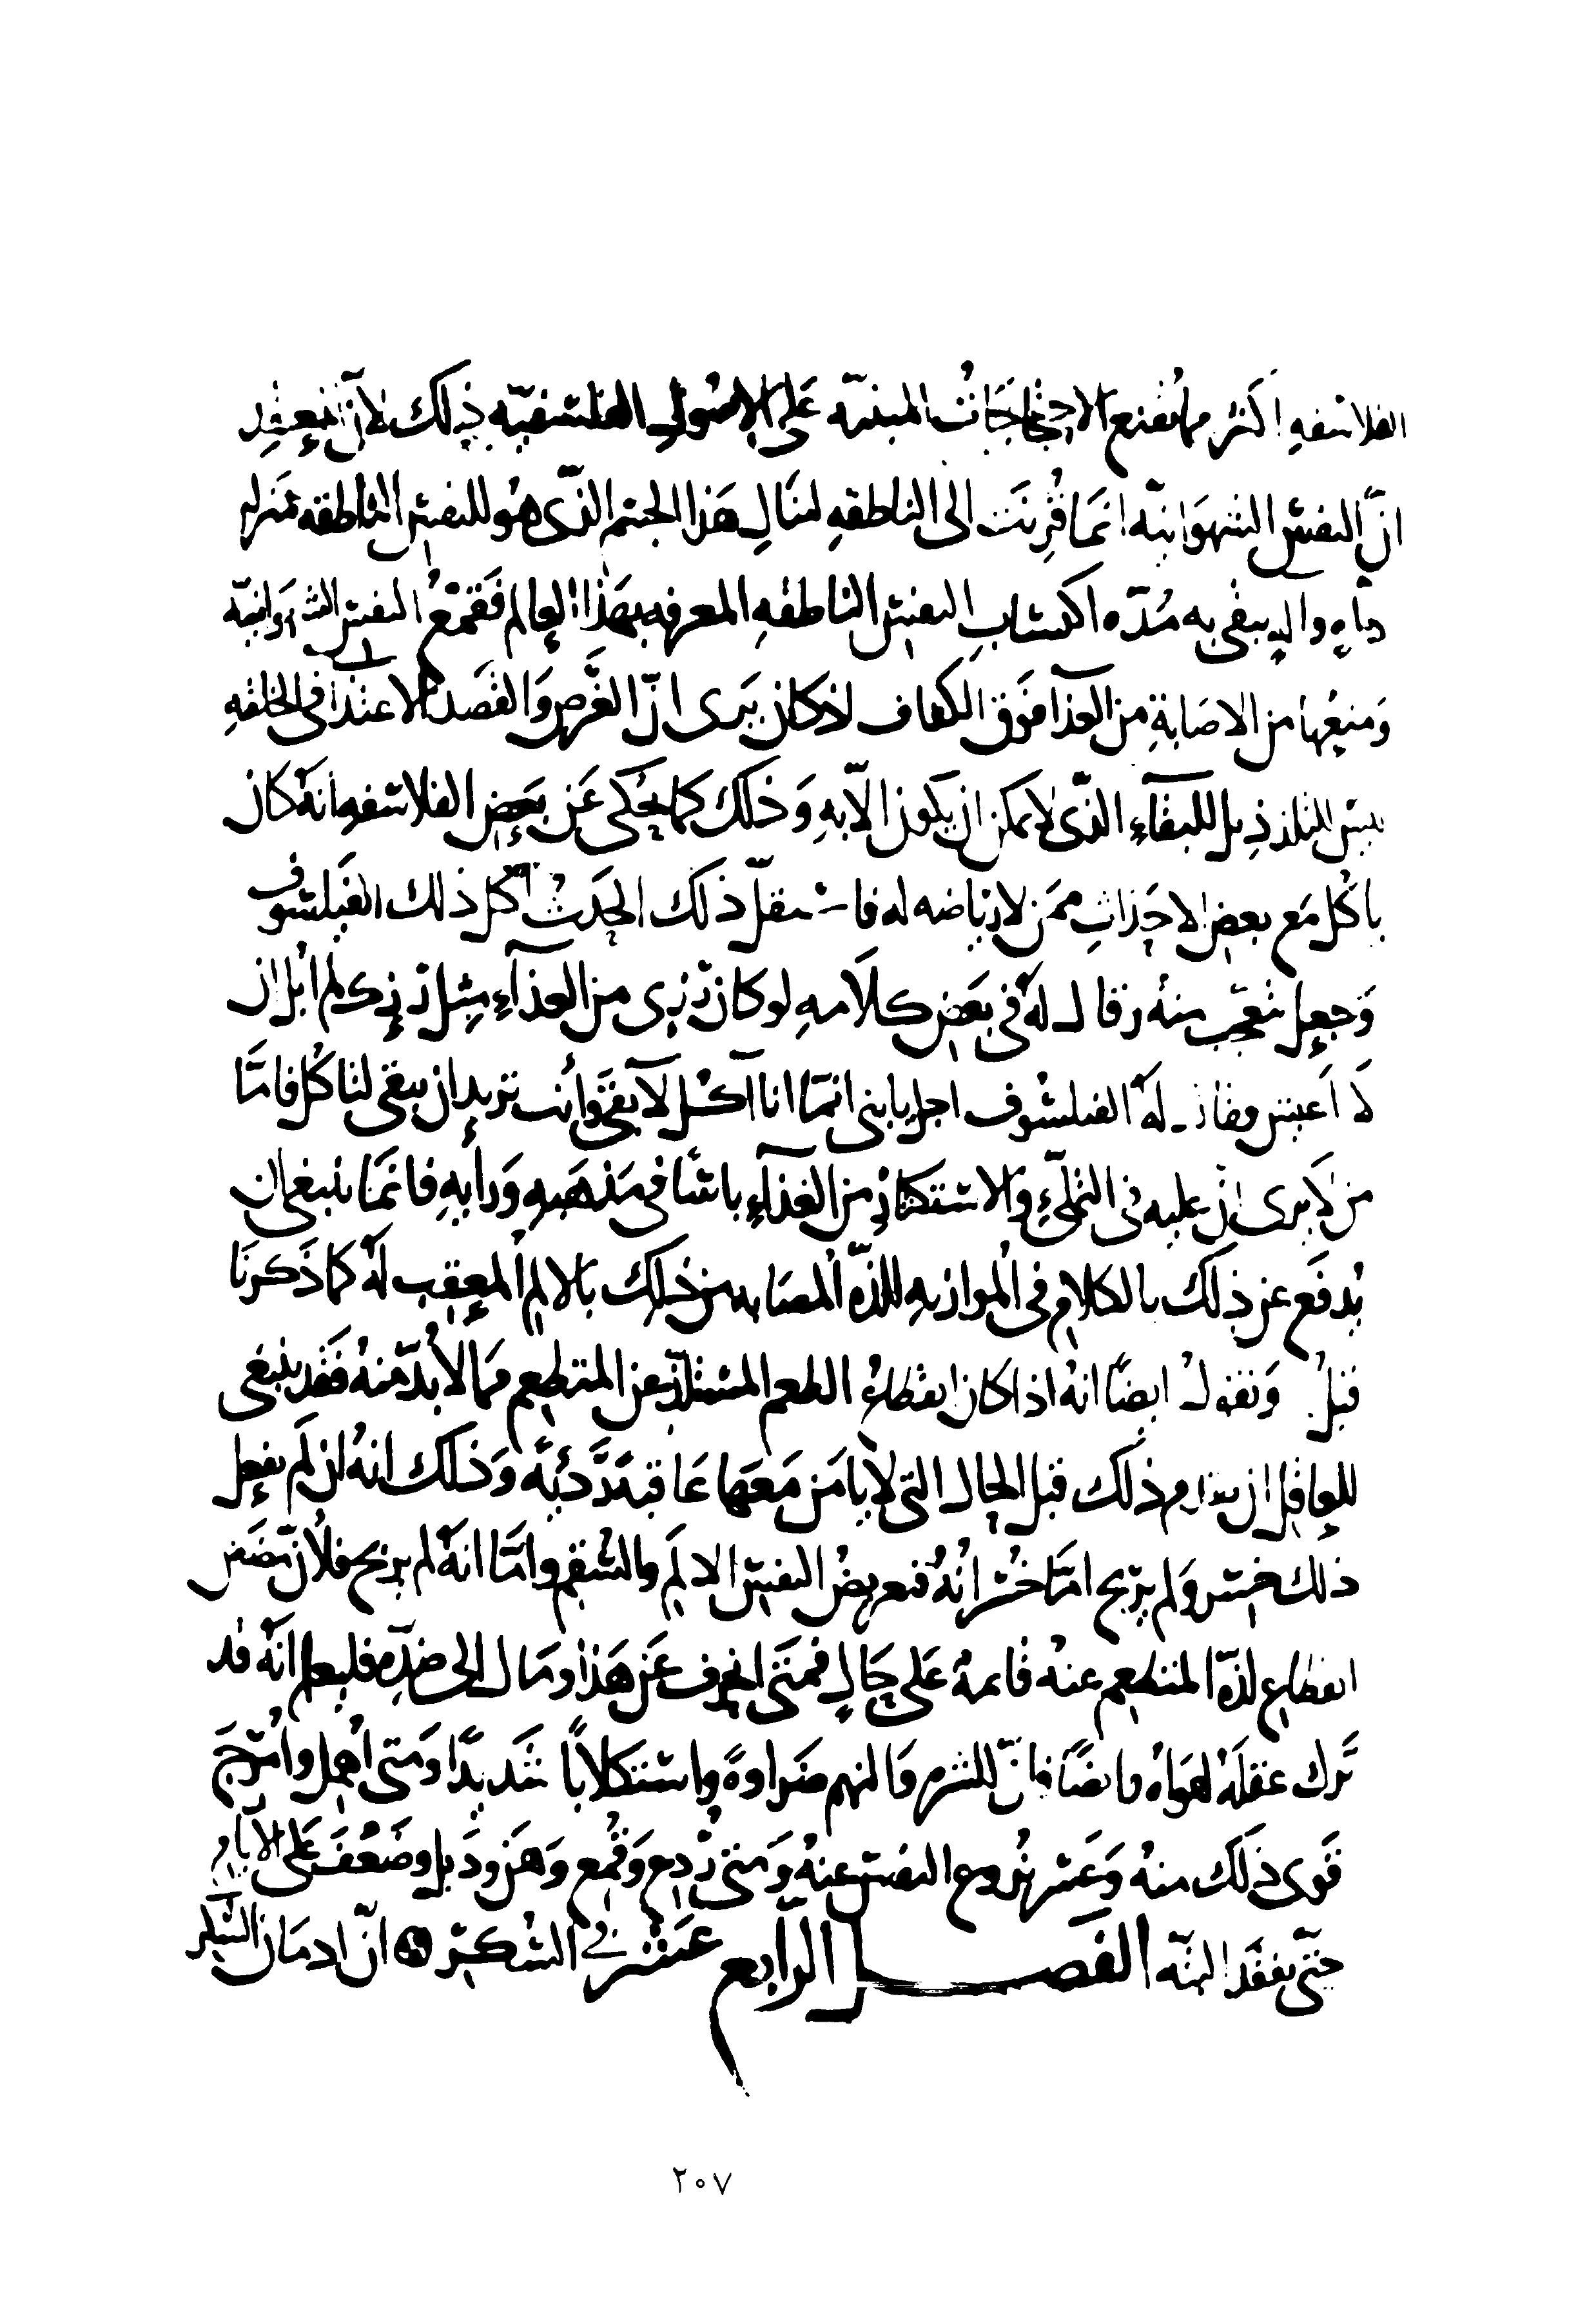 الفلاسفه اكثر مما تقنع الاحتجاجات المبنيّه على الاصول الفلسفيّه وذلك لانّ المعتقد
انّ النفس الشهوانيّه انما قرنت الى الناطقه لتنال هذا الجسم الذى هو للنفس الناطقه بمنزلة
داهٍ والهٍ يبقى به مدّه اكتساب النفس الناطقه المعرفه بهذا العالم فقمع النفس الشهوانيّه
ومنعها من الاصابة من الغذا فوق الكفاف لذ كان يرى انّ الغرض والقصد بالاعتذا فى الخلقه
ليس للتلذذ بل للبقاء الذى لا يمكن ان يكون الّا به وذلك كما يحكى عن بعض الفلاسفه انه كان
ياكل مع بعض الاحداث ممن لا رياضه له فاستقلّ ذلك الحدث اكل ذلك الفيلسوف
وجعل يتعجّب منه وقال له فى بعض كلامه لو كان رزى من الغذآء مثل رزك لم ابل ان
لا اعيش وقال له الفيلسوف اجل يا بنى انمّا انا آكل لابقى وانت تريد ان تبقى لتاكل فامّا
من لا يرى انّ عليه فى التملّئ والاستكثار من الغذآء باسًا فى مذهبه ورايه فانما ينبغى ان
يدفع عن ذلك بالكلام فى الموازنه للذّه المصابه من ذلك بالالم المعقب له كما ذكرنا
قبل ونقول ايضًا انه اذا كان انقطاع الطعم المستلذّ عن المتطعم مما لا بدّ منه فقد ينبغى
للعاقل ان يقدم ذلك قبل الحال التى لا يامن معها عاقبه رديّه وذلك انه ان لم يفعل
ذلك خسر ولم يربح امّا خسرانه فتعريض النفس الالم والسقم وامّا انه لم يربح فلانّ مضض
انقطاع لذّه المتطعم عنه قائمة على حال فمتى انحرف عن هذا ومال الى ضدّه فليعلم انه قد
ترك عقله لهواه وايضًا فانّ للشره والنهم ضراوةً واستكلابًا شديدًا ومتى اهمل وامرج
قوى ذلك منه وعسر نزوع النفس عنه ومتى ردع وقمع وهن وذبل وضعف على الايّام
حتى يفقد البتّه الفصل الرّابع عشر فى السكر انّ ادمان السكر
٢٠٧